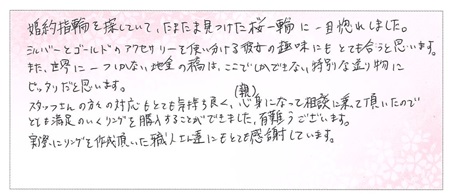 婚約指輪を探していて、たまたま見つけた桜一輪に一目惚れしました。
シルバーとゴールドのアクセサリーを使い分ける彼女の趣味にもとても合うと思います。
また、世界に一つしかない地金の縞は、ここでしかできない、特別な送り物に
ピッタリだと思います。
スタッフさんの方々の対応もとても気持ち良く、(親)心身になって相談に乗て頂いたので
とても満足のいくリングを購入することができました。有難うございます。
実際にリングを作成頂いた職人さん達にもとても感謝しています。